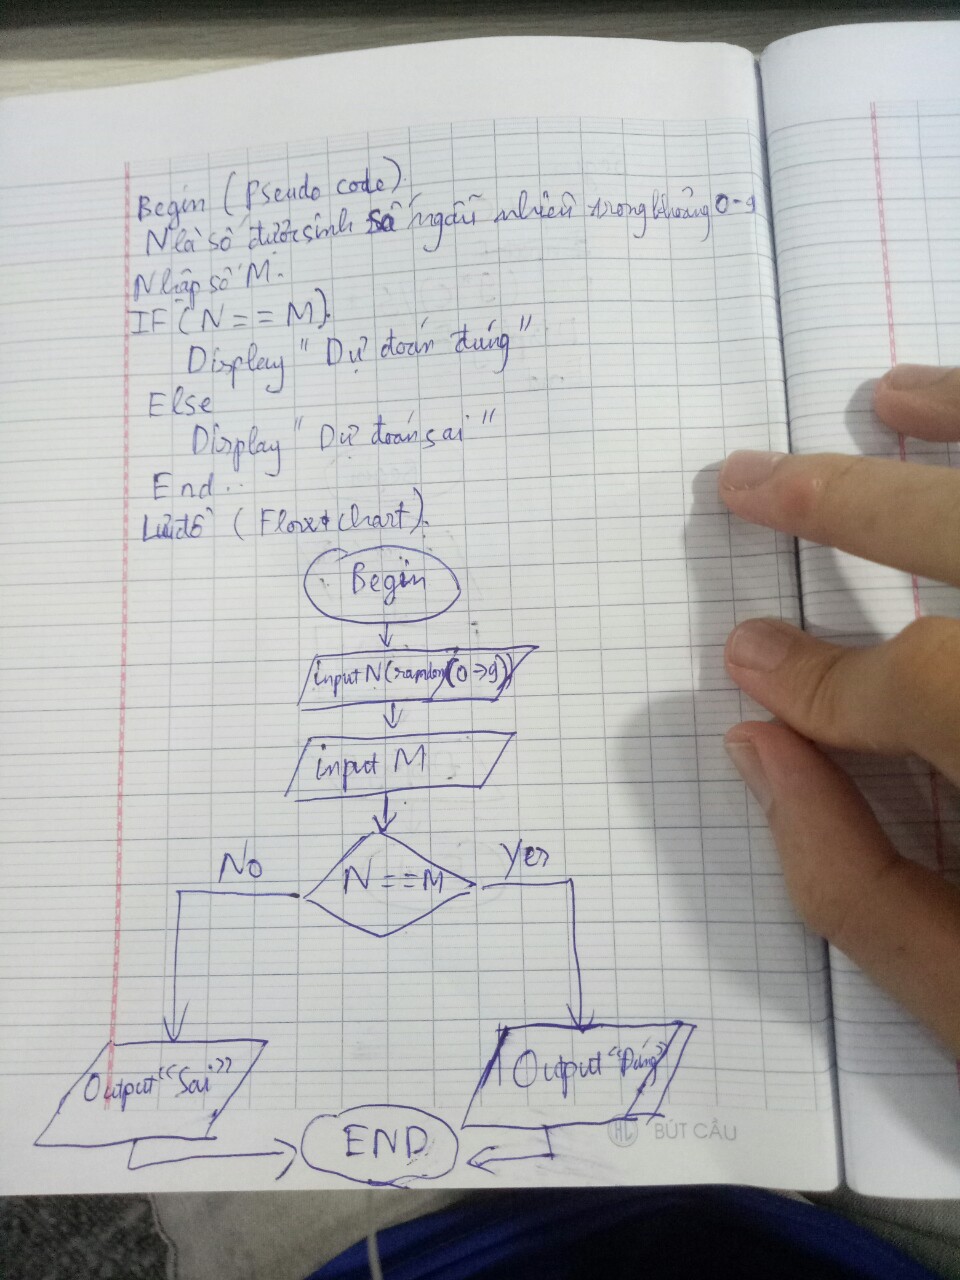 Begin (Pseudo code).
N là số được sinh số ngẫu nhiên trong khoảng 0-9
Nhập số M.
IF (N == M).
Display "Dự đoán đúng"
Else
Display "Dự đoán sai"
End..
Lưu đồ (Flow Chart).
Begin
input N (random (0->9))
input M
No
N == M
Yes
Output "Sai"
Output "Đúng"
END
HL BÚT CÂU